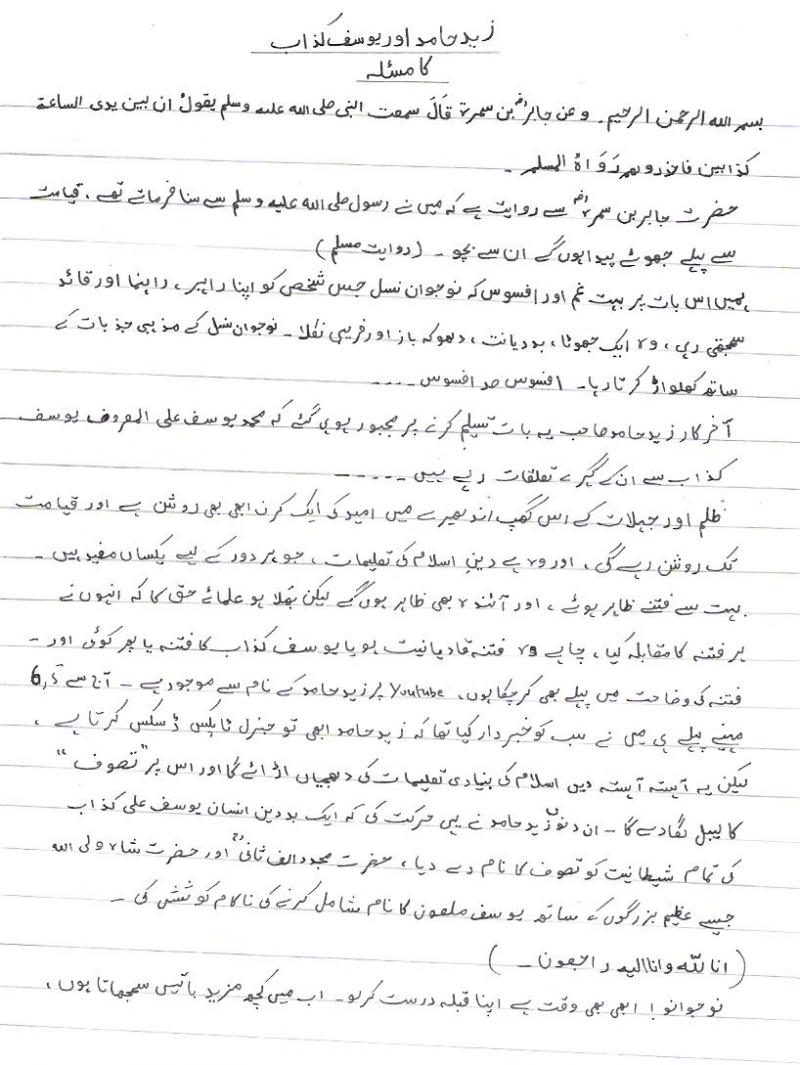 زید حامد اور یوسف کذاب
کا مسئلہ
بسم الله الرحمن الرحيم۔ وعن جابرؓ بن سمرۃ قَالَ سمعت النبی صلی اللہ علیہ وسلم یقولُ ان بین یدی الساعۃ
کذابین فاحذروھم رَوَاہُ المسلم۔
حضرت جابر بن سمرہؓ سے روایت ہے کہ میں نے رسول صلی اللہ علیہ وسلم سے سنا فرماتے تھے، قیامت
سے پہلے جھوٹے پیدا ہوں گے ان سے بچو۔ (روایت مسلم)
ہمیں اس بات پر بہت غم اور افسوس کہ نوجوان نسل جس شخص کو اپنا راہبر، راہنما اور قائد
سمجھتی رہی، وہ ایک جھوٹا، بددیانت، دھوکہ باز اور فریبی نکلا۔ نوجوان نسل کے مذہبی جذبات کے
ساتھ کھلواڑ کرتا رہا۔ افسوس صد افسوس ----
آخر کار زید حامد صاحب یہ بات تسلیم کرنے پر مجبور ہو ہی گئے کہ محمد یوسف علی المعروف یوسف
کذاب سے ان کے گہرے تعلقات رہے ہیں -----
ظلم اور جہلات کے اس گھپ اندھیرے میں امید کی ایک کرن ابھی بھی روشن ہے اور قیامت
تک روشن رہے گی، اور وہ ہے دینِ اسلام کی تعلیمات، جو ہر دور کے لیے یکساں مفید ہیں۔
بہت سے فتنے ظاہر ہوئے، اور آئندہ بھی ظاہر ہوں گے لیکن بھَلا ہو علمائے حق کا کہ انہوں نے
ہر فتنہ کا مقابلہ کیا، چاہے وہ فتنہ قادیانیت ہو یا یوسف کذاب کا فتنہ یا پھر کوئی اور۔
فتنہ کی وضاحت میں پہلے بھی کر چکا ہوں، Youtube پر زید حامد کے نام سے موجود ہے۔ آج سے 6,5
مہنے پہلے ہی میں نے سب کو خبردار کیا تھا کہ زید حامد ابھی تو جنرل ٹاپکس ڈسکس کرتا ہے،
لیکن یہ آہستہ آہستہ دین اسلام کی بنیادی تعلیمات کی دھجیاں اڑائے گا اور اس پر "تصوف"
کا لیبل لگا دے گا۔ ان دنوں زید حامد نے یہی حرکت کی کہ ایک بددین انسان یوسف علی کذاب
کی تمام شیطانیت کو تصوف کا نام دے دیا، حضرت مجدد الف ثانیؒ اور حضرت شاہ ولی اللہ
جیسے عظیم بزرگوں کے ساتھ یوسف ملعون کا نام شامل کرنے کی ناکام کوشش کی۔
(انا للّٰہ وانا الیہ راجعون۔)
نوجوانو! ابھی بھی وقت ہے اپنا قبلہ درست کرلو۔ اب میں کچھ مزید باتیں سمجھاتا ہوں،